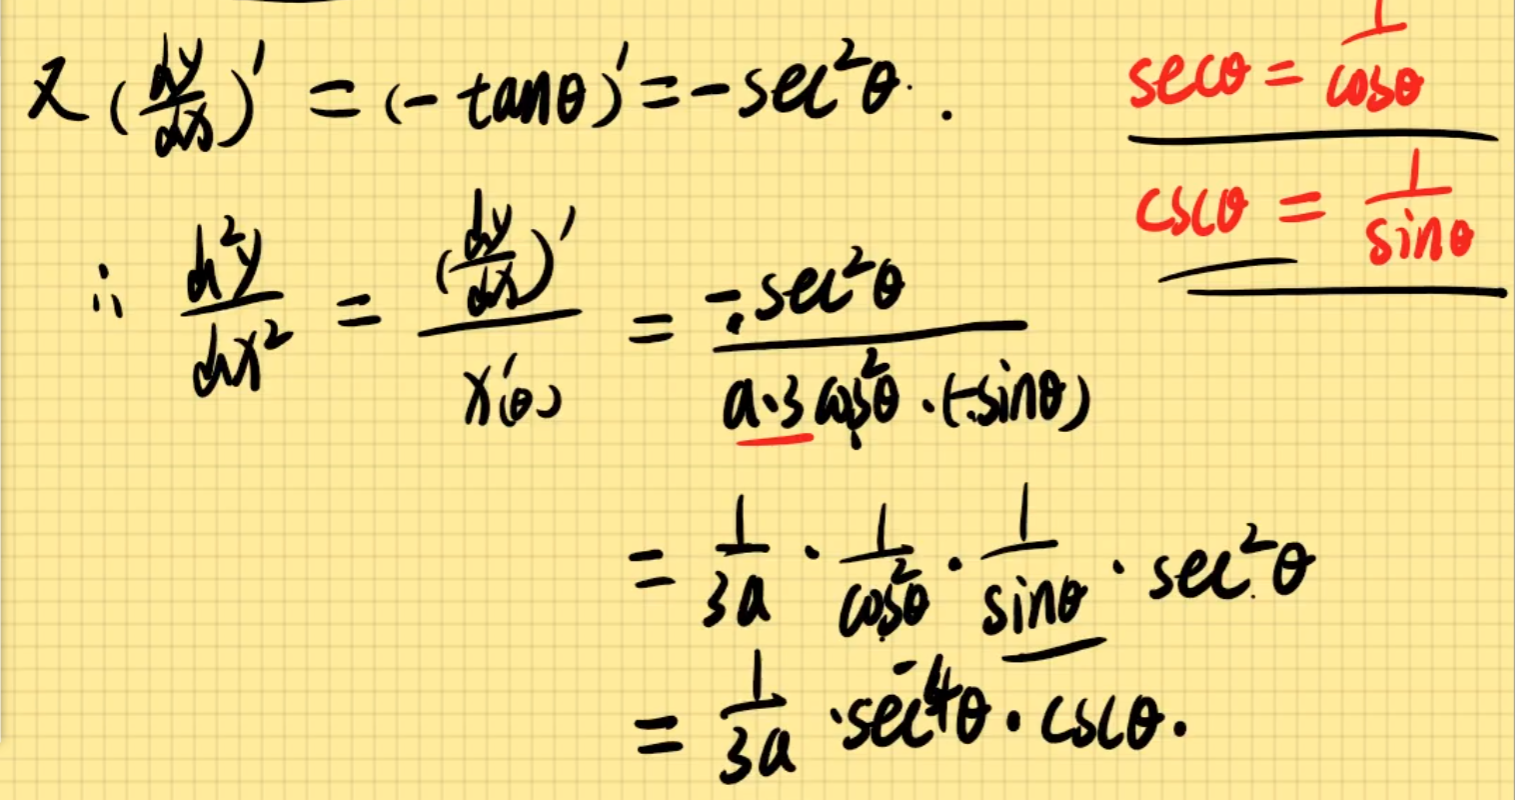 又 (dy/dx)' = (- tanθ)' = - sec²θ.
secθ = 1/cosθ
cscθ = 1/sinθ
∴ d²y/dx² = (dy/dx)'/x'(θ) = -sec²θ/(a·3cos²θ·(-sinθ))
= 1/3a · 1/cos²θ · 1/sinθ · sec²θ
= 1/3a · sec⁴θ · cscθ.